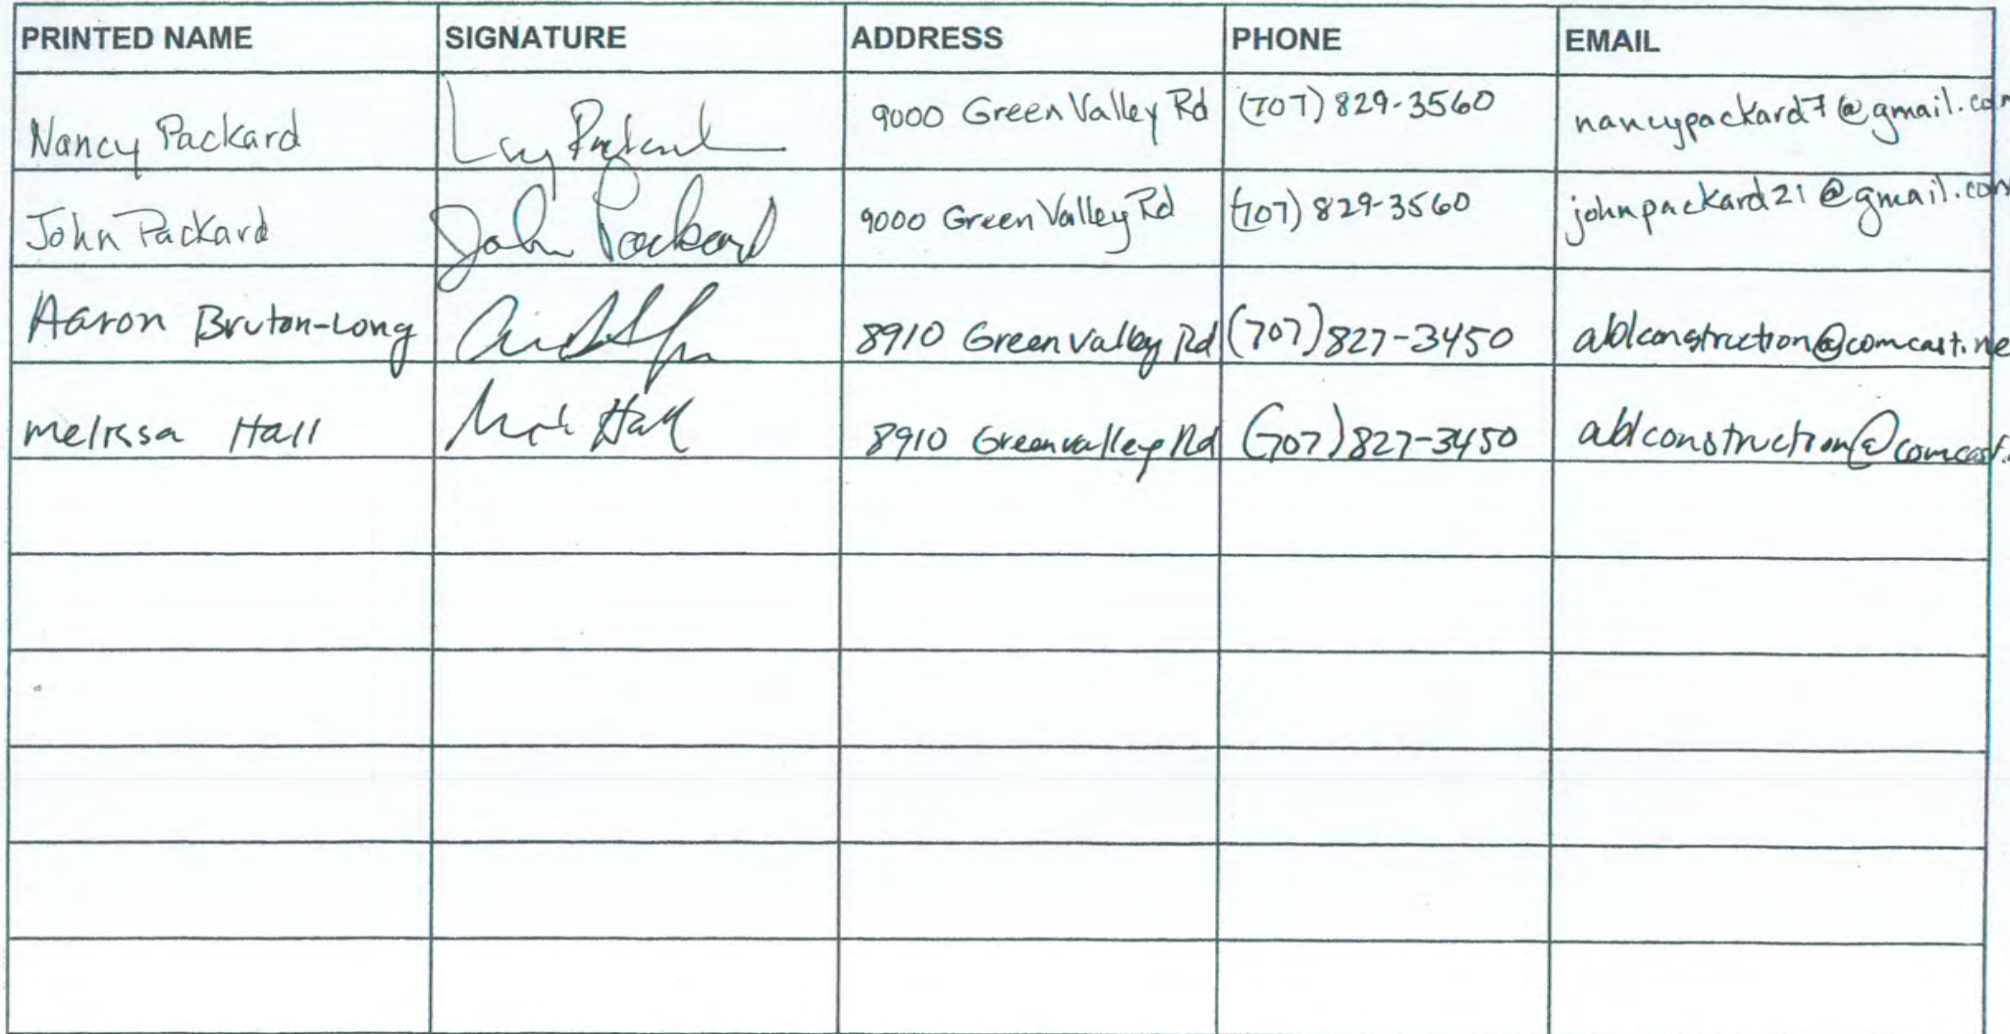 PRINTED NAME SIGNATURE ADDRESS PHONE EMAIL
Nancy Packard 9000 Green Valley Rd (707) 829-3560 nancypackard7@gmail.com
John Packard John Packard 9000 Green Valley Rd (707) 829-3560 johnpackard21@gmail.com
Aaron Bruton-Long 8910 Green valley Rd (707) 827-3450 ablconstruction@comcast.ne
melissa Hall Hall 8910 Greenvalley Rd (707) 827-3450 ablconstruction@comcast.